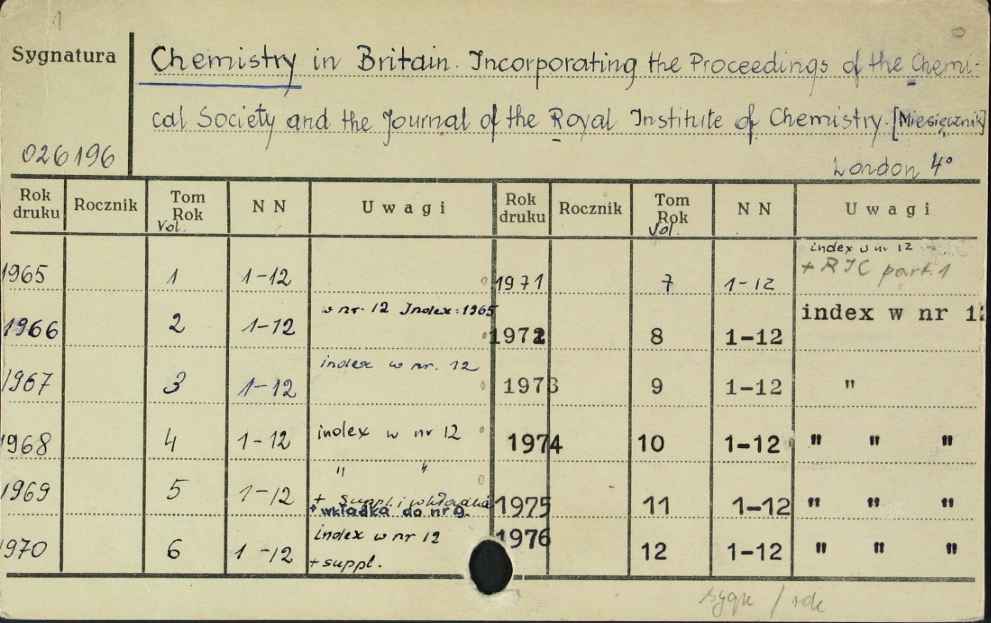 Sygnatura Chemistry in Britain. Incorporating the Proceedings of the Chemi-
cal Society and the Journal of the Royal Institute of Chemistry. [Miesięcznik]
026196 London 4°
Rok druku Rocznik Tom Rok Vol. NN Uwagi Rok druku Rocznik Tom Rok Vol. NN Uwagi
1965 1 1-12 1971 7 1-12 index w nr 12 + RIC part. 1
1966 2 1-12 w nr. 12 Index: 1965 1972 8 1-12 index w nr 12
1967 3 1-12 index w nr. 12 1973 9 1-12 "
1968 4 1-12 index w nr 12 1974 10 1-12 " " "
1969 5 1-12 " " + suppl. i wkładka + wkładka do nr 9. 1975 11 1-12 " " "
1970 6 1-12 index w nr 12 + suppl. 1976 12 1-12 " " "